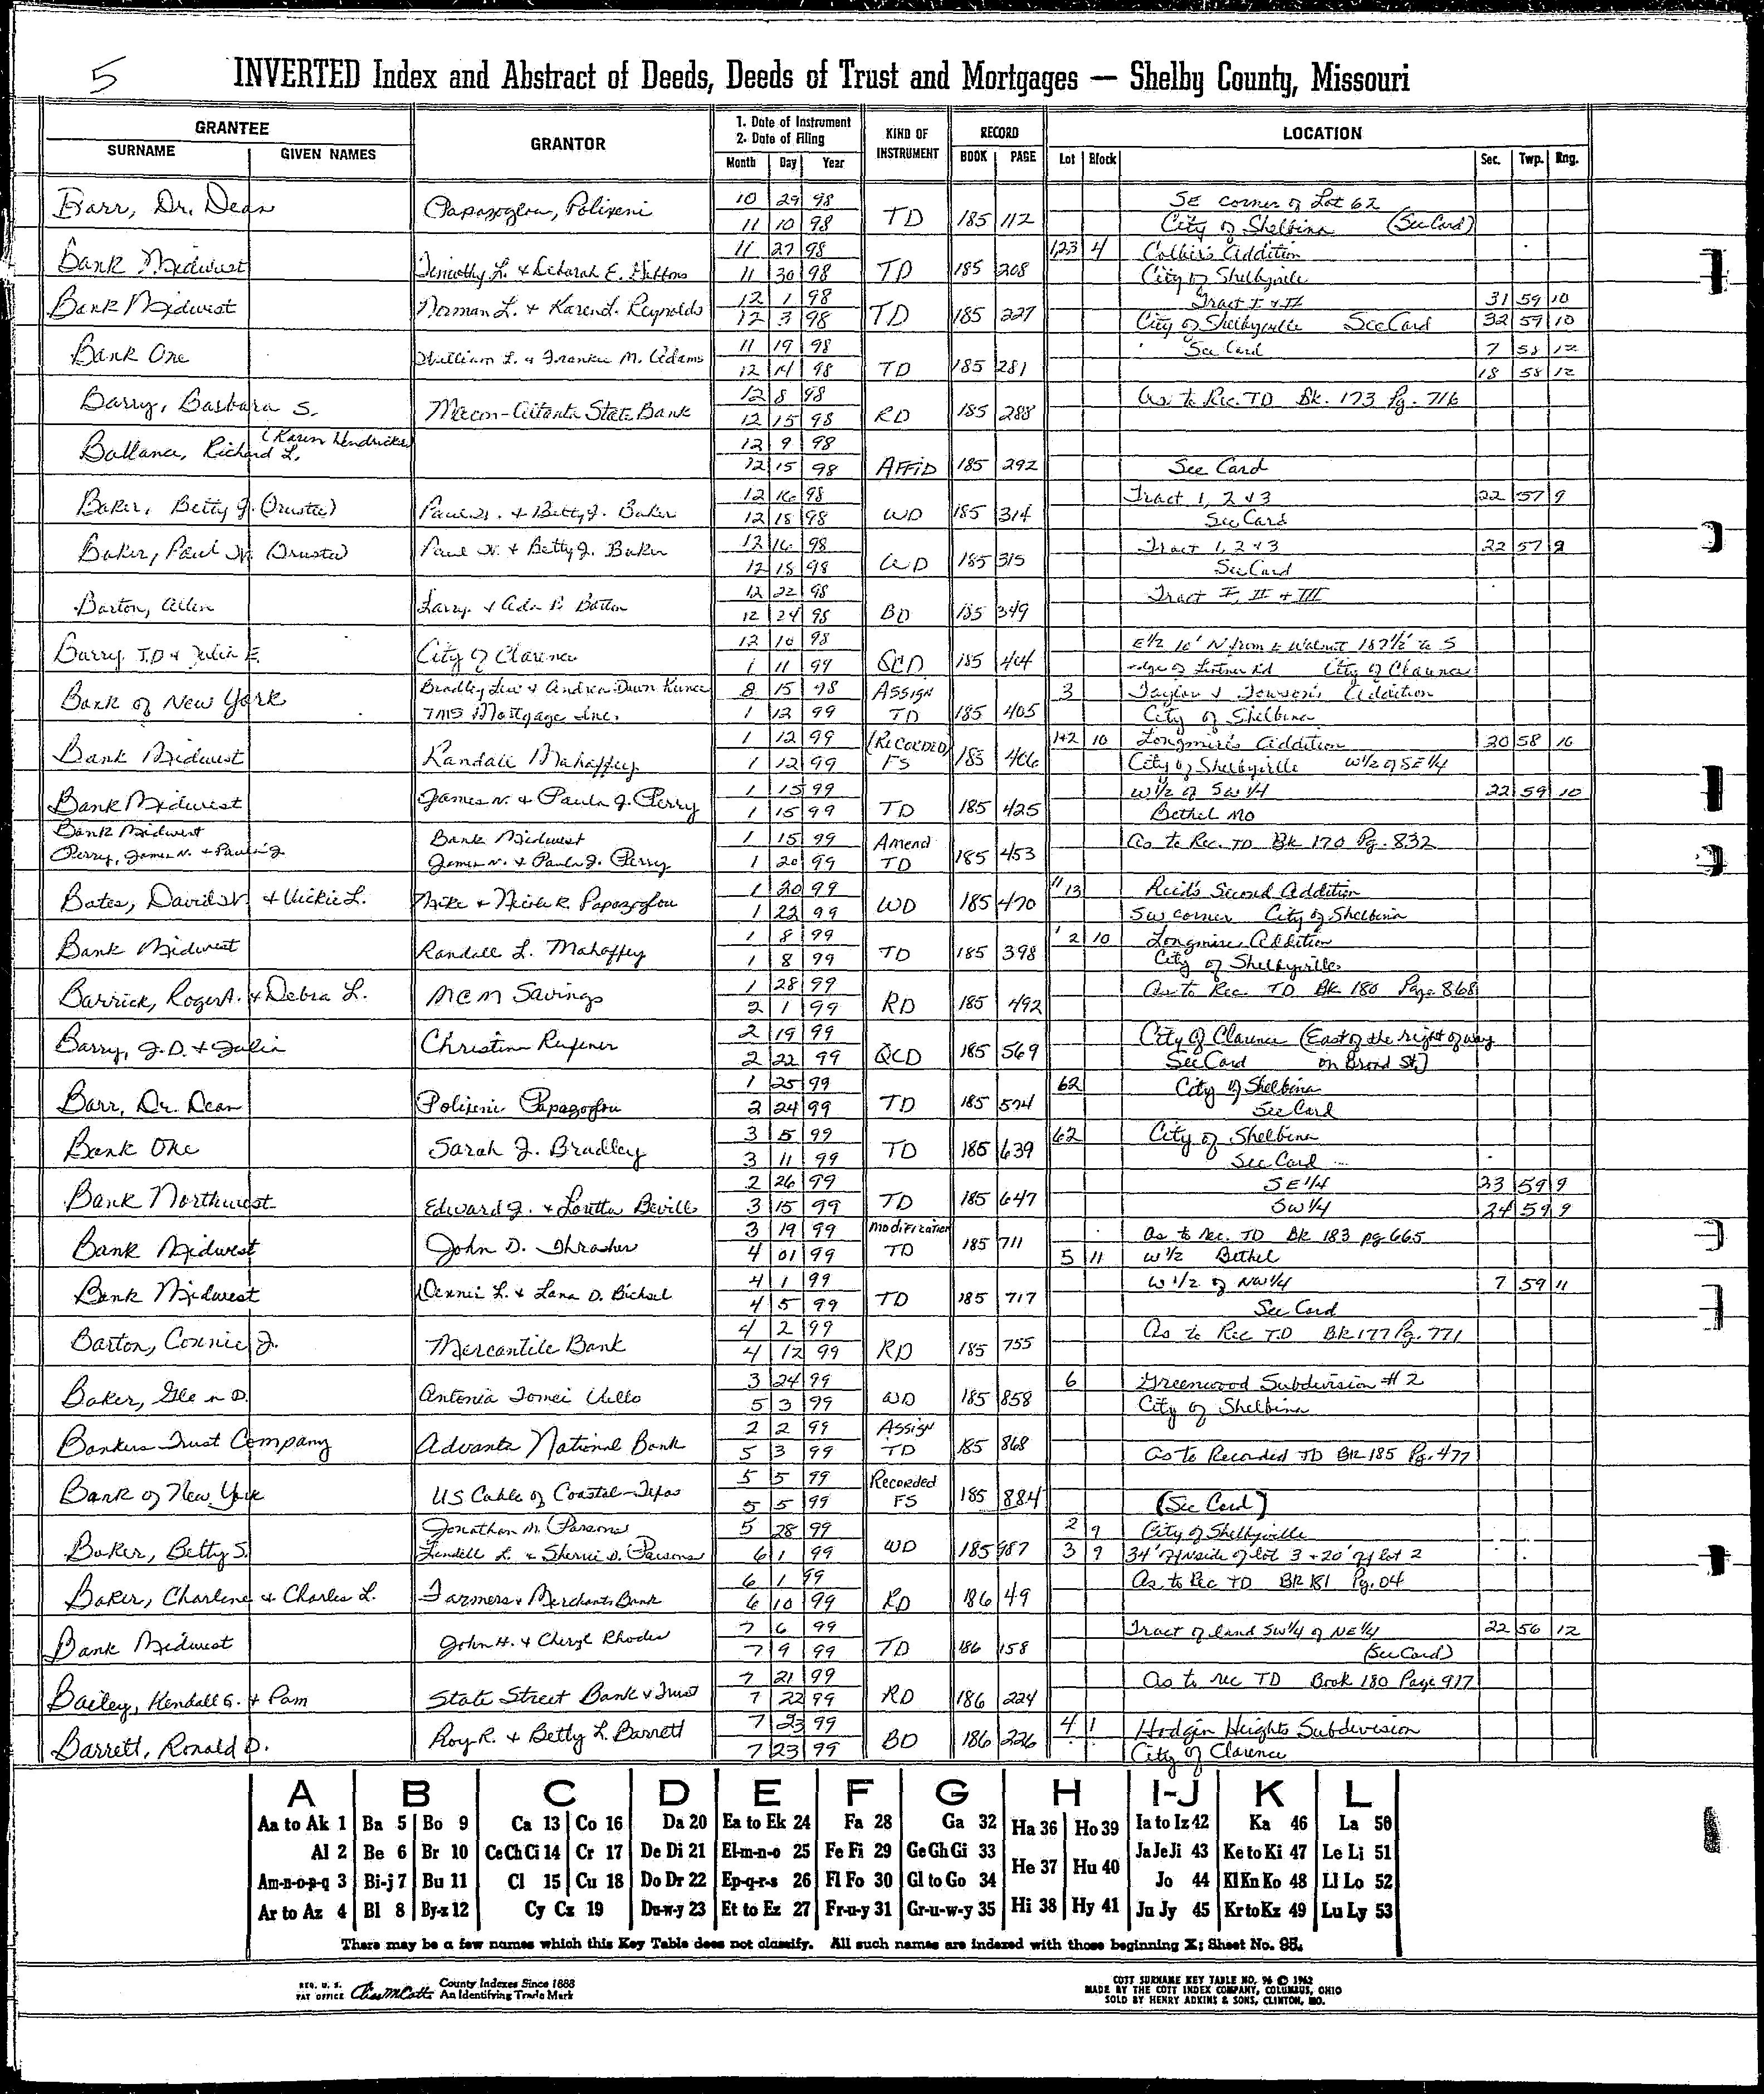 5
INVERTED Index and Abstract of Deeds, Deeds of Trust and Mortgages — Shelby County, Missouri
GRANTEE
SURNAME GIVEN NAMES
GRANTOR
1. Date of Instrument
2. Date of Filing
Month Day Year
KIND OF INSTRUMENT
RECORD
BOOK PAGE
LOCATION
Lot Block Sec. Twp. Rng.
10 29 98 SE corner of Lot 62
Barr, Dr. Dean Papazoglou, Polixeni 11 10 98 TD 185 112 City of Shelbina (See Card)
11 27 98 123 4 Collier's Addition
Bank Midwest Timothy L. & Deborah E. 11 30 98 TD 185 208 City of Shelbyville
12 1 98 Tract I & II 31 59 10
Bank Midwest Norman L. & Karen L. Reynolds 12 3 98 TD 185 227 City of Shelbyville See Card 32 59 10
11 19 98 See Card 7 58 12
Bank One William L. & Frankie M. Adams 12 14 98 TD 185 281 18 58 12
12 8 98 As to Rec. TD Bk. 173 Pg. 716
Barry, Barbara S. Macon-Atlanta State Bank 12 15 98 RD 185 288
(Karen Hendricks) 12 9 98
Ballance, Richard L. 12 15 98 AFFID 185 292 See Card
12 16 98 Tract 1, 2 & 3 22 57 9
Baker, Betty J. (Trustee) Paul W. & Betty J. Baker 12 18 98 WD 185 314 See Card
12 16 98 Tract 1, 2 & 3 22 57 9
Baker, Paul W. (Trustee) Paul W. & Betty J. Baker 12 18 98 WD 185 315 See Card
12 22 98 Tract I, II & III
Barton, Larry & 12 24 98 BD 185 349
12 10 98 E1/2 10' N from Walnut 187 1/2' to S
Barry J.D & Julia E. City of Clarence 1 11 99 QCD 185 404 edge of City of Clarence
Bradley Lee & Andrea Dawn 8 15 98 Assign 3 Taylor & Addition
Bank of New York TMS Mortgage Inc. 1 12 99 TD 185 405 City of Shelbina
1 12 99 (RECORDED) 1+2 10 Longmire's Addition 20 58 10
Bank Midwest Randall Mahaffey 1 12 99 FS 185 406 City of Shelbyville W1/2 of SE1/4
1 15 99 W1/2 of SW1/4 22 59 10
Bank Midwest James N. & Paula J. Perry 1 15 99 TD 185 425 Bethel Mo
Bank Midwest Bank Midwest 1 15 99 Amend As to Rec. TD Bk 170 Pg. 832
Perry, James N. & Paula J. James N. & Paula J. Perry 1 20 99 TD 185 453
1 20 99 11 13 Reid's Second Addition
Bates, David W. & Vickie L. Mike & Nicole R. Papazoglou 1 22 99 WD 185 470 SW corner City of Shelbina
1 8 99 1 2 10 Longmire Addition
Bank Midwest Randall L. Mahaffey 1 8 99 TD 185 398 City of Shelbyville
1 28 99 As to Rec. TD Bk 180 Page 868
Barrick, Roger A. & Debra L. MCM Savings 2 1 99 RD 185 492
2 19 99 City Of Clarence (East of the right of way
Barry, J.D. & Julia Christina Rufener 2 22 99 QCD 185 569 See Card on Broad St.)
1 25 99 62 City of Shelbina
Barr, Dr. Dean Polixeni Papazoglou 2 24 99 TD 185 574 See Card
3 5 99 62 City of Shelbina
Bank One Sarah J. Bradley 3 11 99 TD 185 639 See Card
2 26 99 SE1/4 23 59 9
Bank Northwest Edward J. & Loretta Beville 3 15 99 TD 185 647 SW1/4 24 59 9
3 19 99 Modification As to Rec. TD Bk 183 pg 665
Bank Midwest John D. Thrasher 4 01 99 TD 185 711 5 11 W1/2 Bethel
4 1 99 W1/2 of NW1/4 7 59 11
Bank Midwest Dennis L. & Lana D. Bichsel 4 5 99 TD 185 717 See Card
4 2 99 As to Rec TD Bk 177 Pg. 771
Barton, Connie J. Mercantile Bank 4 12 99 RD 185 755
3 24 99 6 Greenwood Subdivision #2
Baker, Glen D. Antonia Tomei Uello 5 3 99 WD 185 858 City of Shelbina
2 2 99 Assign
Bankers Trust Company Advanta National Bank 5 3 99 TD 185 868 As to Recorded TD Bk 185 Pg. 477
5 5 99 Recorded
Bank of New York US Cable of Coastal-Texas 5 5 99 FS 185 884 (See Card)
Jonathan M. Parsons 5 28 99 2 9 City of Shelbyville
Baker, Betty S. Lendell L. & Sherrie D. Parsons 6 1 99 WD 185 987 3 9 34' of N side of lot 3 + 20' of lot 2
6 1 99 As to Rec TD Bk 181 Pg. 04
Baker, Charlene & Charles L. Farmers & Merchants Bank 6 10 99 RD 186 49
7 6 99 Tract of land SW1/4 of NE1/4 22 56 12
Bank Midwest John H. & Cheryl Rhodes 7 9 99 TD 186 158 (See Card)
7 21 99 As to rec TD Book 180 Page 917
Bailey, Kendall G. & Pam State Street Bank & Trust 7 22 99 RD 186 224
7 23 99 4 1 Hodgin Heights Subdivision
Barrett, Ronald D. Roy R. & Betty L. Barrett 7 23 99 BD 186 226 City of Clarence
A B C D E F G H I-J K L
Aa to Ak 1 Ba 5 Bo 9 Ca 13 Co 16 Da 20 Ea to Ek 24 Fa 28 Ga 32 Ha 36 Ho 39 Ia to Iz 42 Ka 46 La 50
Al 2 Be 6 Br 10 Ce Ch Ci 14 Cr 17 De Di 21 El-m-n-o 25 Fe Fi 29 Ge Gh Gi 33 He 37 Hu 40 Ja Je Ji 43 Ke to Ki 47 Le Li 51
Am-n-o-p-q 3 Bi-j 7 Bu 11 Cl 15 Cu 18 Do Dr 22 Ep-q-r-s 26 Fl Fo 30 Gl to Go 34 Jo 44 Kl Kn Ko 48 Ll Lo 52
Ar to Az 4 Bl 8 By-z 12 Cy Cz 19 Du-w-y 23 Et to Ez 27 Fr-u-y 31 Gr-u-w-y 35 Hi 38 Hy 41 Ju Jy 45 Kr to Kz 49 Lu Ly 53
There may be a few names which this Key Table does not classify. All such names are indexed with those beginning X; Sheet No. 95.
REG. U. S. PAT OFFICE County Indexes Since 1888
An Identifying Trade Mark
COTT SURNAME KEY TABLE NO. 96 © 1962
MADE BY THE COTT INDEX COMPANY, COLUMBUS, OHIO
SOLD BY HENRY ADKINS & SONS, CLINTON, MO.